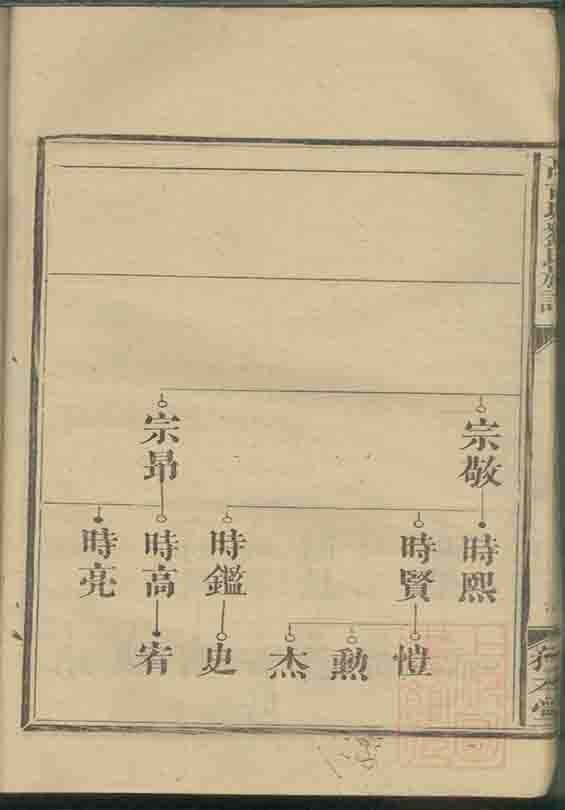 宗敬
宗昂
時熙
時賢
時鑑
時高
時亮
愷
勲
杰
史
宥